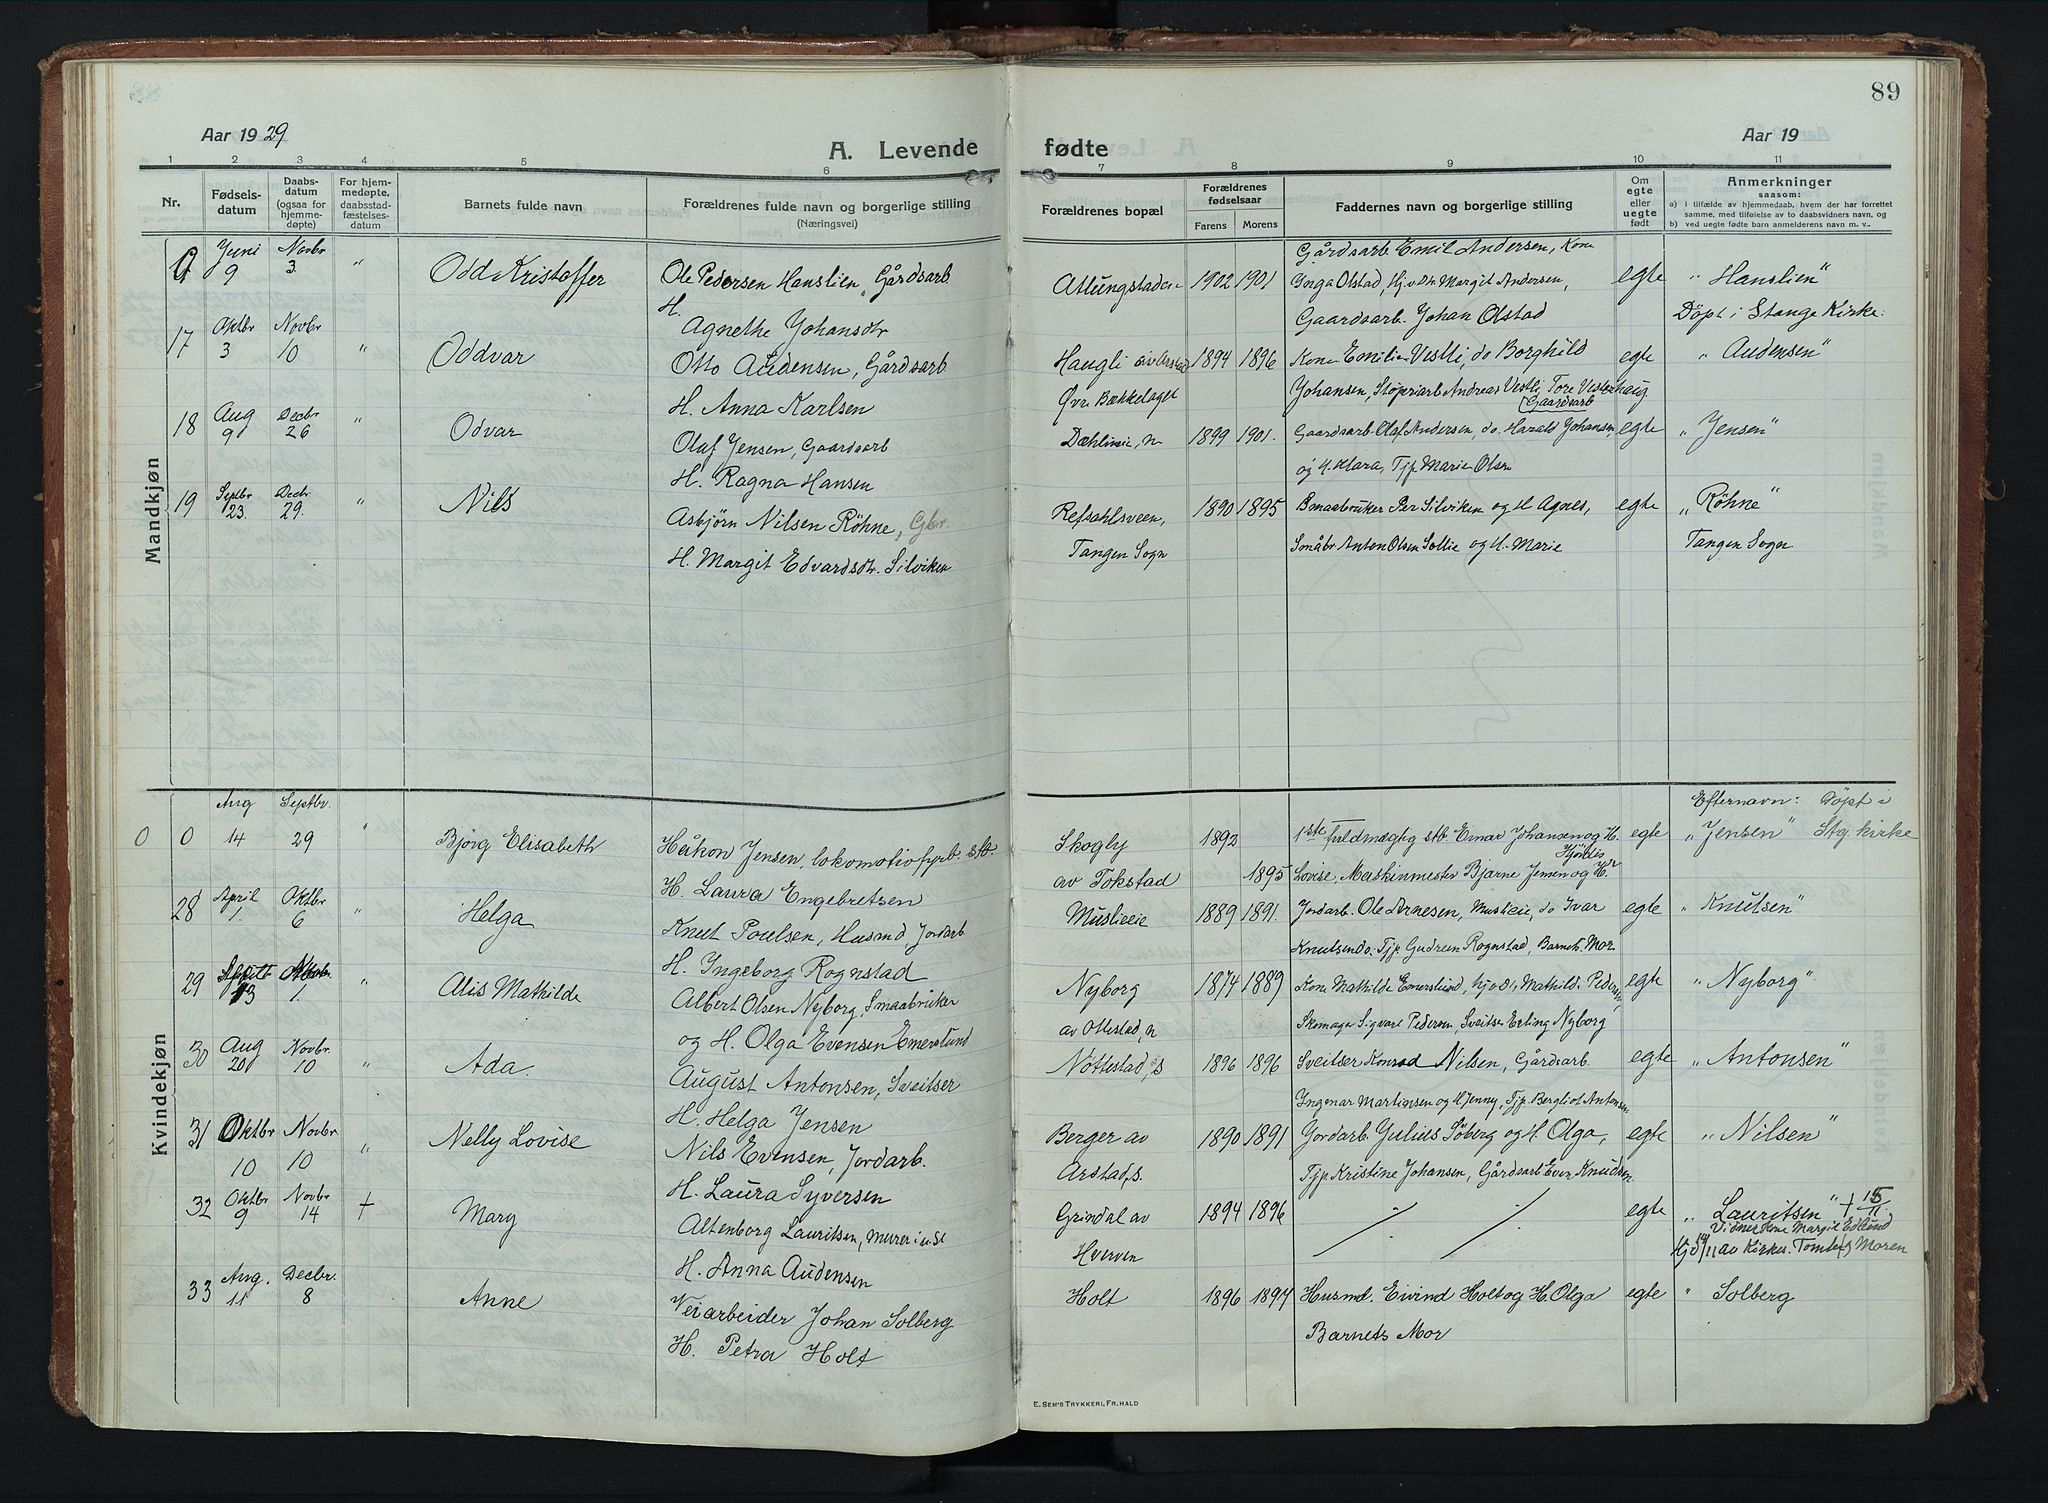 89
Aar 1929
A. Levende fødte
Aar 19
1 2 3 4 5 6 7 8 9 10 11
Nr.
Fødsels-
datum
Daabs-
datum
(ogsaa for
hjemme-
døpte)
For hjem-
medøpte,
daabsstad-
fæstelses-
datum
Barnets fulde navn
Forældrenes fulde navn og borgerlige stilling
(Næringsvei)
Forældrenes bopæl
Forældrenes
fødselsaar
Farens Morens
Faddernes navn og borgerlige stilling
Om
egte
eller
uegte
født
Anmerkninger
saasom:
a) i tilfælde av hjemmedaab, hvem der har forrettet
samme, med tilføielse av to daabsvidners navn, og
b) ved uegte fødte barn anmelderens navn m. v.
Mandkjøn
0 Juni 9 Novbr 3 " Odd Kristoffer
Ole Pedersen Hanslien, Gårdsarb.
H. Agnethe Johansdtr
Atlungstadeie 1902 1901
Gårdsarb. Emil Andersen, Kone
Inga Olstad, Hj.v.Dtr Margit Andersen,
Gaardsarb. Johan Olstad
egte "Hanslien"
Døpt i Stange Kirke.
17 Oktbr 3 Novbr 10 " Oddvar
Otto Audensen, Gårdsarb
H. Anna Karlsen
Haugli av Arstad
Øvre Bækkelaget
1894 1896
Kone Emilie Vestli, do Borghild
Johansen, Støperiarb Andreas Vestli, Tore Vesterhaug
Gaardsarb
egte "Audensen"
18 Aug 9 Decbr 26 " Odvar
Olaf Jensen, Gaardsarb
H. Ragna Hansen
Dæhlineie, n 1899 1901.
Gaardsarb. Olaf Andersen, do. Harald Johansen,
og H. Klara, Tjp. Marie Olsen
egte "Jensen"
19 Septbr 23. Decbr 29. " Nils
Asbjørn Nilsen Røhne, Gbr.
H. Margit Edvardsdtr. Silviken
Refsahlsveen,
Tangen Sogn
1890 1895
Smaabruker Per Silviken og H. Agnes,
Småbr Anton Olsen Sollie og H. Marie
egte "Røhne"
Tangen Sogn
Kvindekjøn
0 0 Aug 14 Septbr. 29 " Bjørg Elisabeth
Håkon Jensen, lokomotivfyrb. stb.
H. Laura Engebretsen
Skogly
av Tokstad
1893
1895
1ste fuldmægtig stb. Einar Johansen og H.
Hjördis
Lovise, Maskinmester Bjarne Jensen og H.
egte Efternavn: Døpt i
"Jensen" Stg. kirke
28 April 1. Oktbr 6 " Helga
Knut Poulsen, Husmd, Jordarb
H. Ingeborg Rognstad
Muslieeie 1889 1891.
Jordarb. Ole Arnesen, Muslieie, do Ivar
Knutsen do. Tjp. Gudrun Rognstad, Barnets Mor
egte "Knutsen"
29 13 1 " Alis Mathilde
Albert Olsen Nyborg, Smaabruker
og H. Olga Evensen Emerslund
Nyborg
av Ottestad, n
1874 1889
Kone Mathilde Emerslund, Hj.v.Dtr. Mathild. Pedersen,
Skomager Sigvart Pedersen, Sveitser Erling Nyborg
egte "Nyborg"
30 Aug 20 Novbr. 10 " Ada.
August Antonsen, Sveitser
H. Helga Jensen
Nøttestad, s 1896 1896
Sveitser Konrad Nilsen, Gårdsarb.
Ingemar Martinsen og H. Jenny, Tjp. Bergliot Antonsen
egte "Antonsen"
31 Oktbr 10 Novbr 10 " Nelly Lovise
Nils Evensen, Jordarb.
H. Laura Syversen
Berger av
Arstad, s.
1890 1891
Jordarb. Julius Søberg og H. Olga,
Tjp. Kristine Johansen, Gårdsarb Even Knudsen
egte "Nilsen"
32 Oktbr 9 Novbr 14 + Mary
Altenborg Lauritsen, murer i u. St
H. Anna Audensen
Grindal av
Hverven
1894 1896
egte "Lauritsen" + 15/11.
Vidner Kone Margit Edlund
Hjd 14/11 av Kirkes. Tomter og Moren
33 Aug. 11 Decbr. 8 Anne
Veiarbeider Johan Solberg
H. Petra Holt
Holt 1896 1894
Husmd. Eivind Holt og H. Olga
Barnets Mor
egte " Solberg
E. SEM'S TRYKKERI, FR. HALD